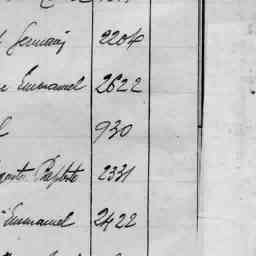 Germain 2204
e Emmanuel 2622
l 930
Baptiste 2331
Emmanuel 2422